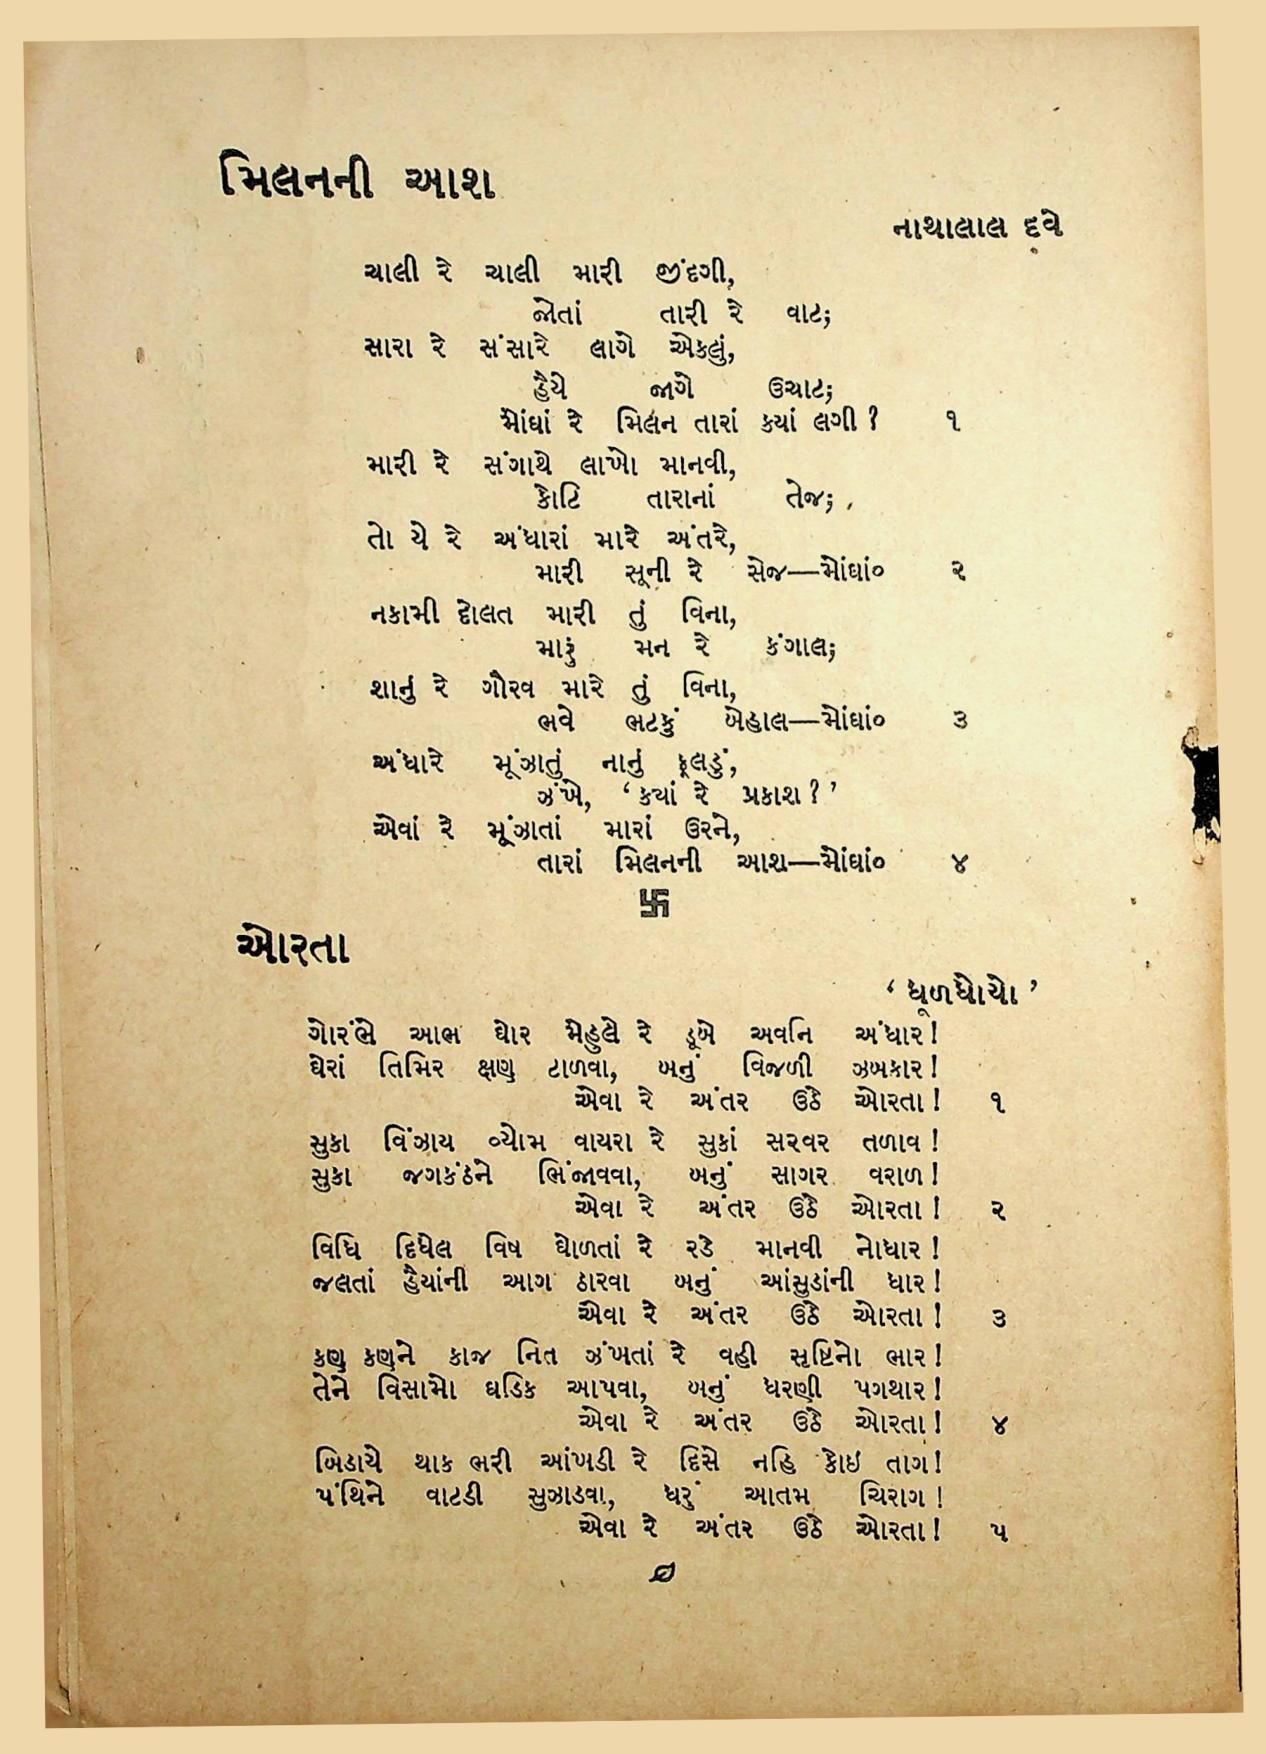 મિલનની આશ
નાથાલાલ દવે
ચાલી રે ચાલી મારી જીંદગી,
જોતાં તારી રે વાટ;
સારા રે સંસારે લાગે એકલું,
હૈયે જાગે ઉચાટ;
મોંઘાં રે મિલન તારાં ક્યાં લગી? ૧
મારી રે સંગાથે લાખો માનવી,
કોટિ તારાનાં તેજ;
તો યે રે અંધારાં મારે અંતરે,
મારી સૂની રે સેજ—મોંઘાં૦ ૨
નકામી દોલત મારી તું વિના,
મારું મન રે કંગાલ;
શાનું રે ગૌરવ મારે તું વિના,
ભવે ભટકું બેહાલ—મોંઘાં૦ ૩
અંધારે મૂંઝાતું નાનું ફૂલડું,
ઝંખે, ‘ક્યાં રે પ્રકાશ?’
એવાં રે મૂંઝાતાં મારાં ઉરને,
તારાં મિલનની આશ—મોંઘાં૦ ૪
ઓરતા
‘ધૂળધોયો’
ગોરંભે આભ ઘોર મેહુલે રે ડૂબે અવનિ અંધાર!
ઘેરાં તિમિર ક્ષણ ટાળવા, બનું વિજળી ઝબકાર!
એવા રે અંતર ઉઠે ઓરતા! ૧
સુકા વિંઝાય વ્યોમ વાયરા રે સુકાં સરવર તળાવ!
સુકા જગકંઠને ભિંજાવવા, બનું સાગર વરાળ!
એવા રે અંતર ઉઠે ઓરતા! ૨
વિધિ દિધેલ વિષ ઘોળતાં રે રડે માનવી નોધાર!
જલતાં હૈયાંની આગ ઠારવા બનું આંસુડાંની ધાર!
એવા રે અંતર ઉઠે ઓરતા! ૩
કણ કણને કાજ નિત ઝંખતાં રે વહી સૃષ્ટિનો ભાર!
તેને વિસામો ઘડિક આપવા, બનું ધરણી પગથાર!
એવા રે અંતર ઉઠે ઓરતા! ૪
બિડાયે થાક ભરી આંખડી રે દિસે નહિ કોઇ તાગ!
પંથિને વાટડી સુઝાડવા, ધરું આતમ ચિરાગ!
એવા રે અંતર ઉઠે ઓરતા! ૫